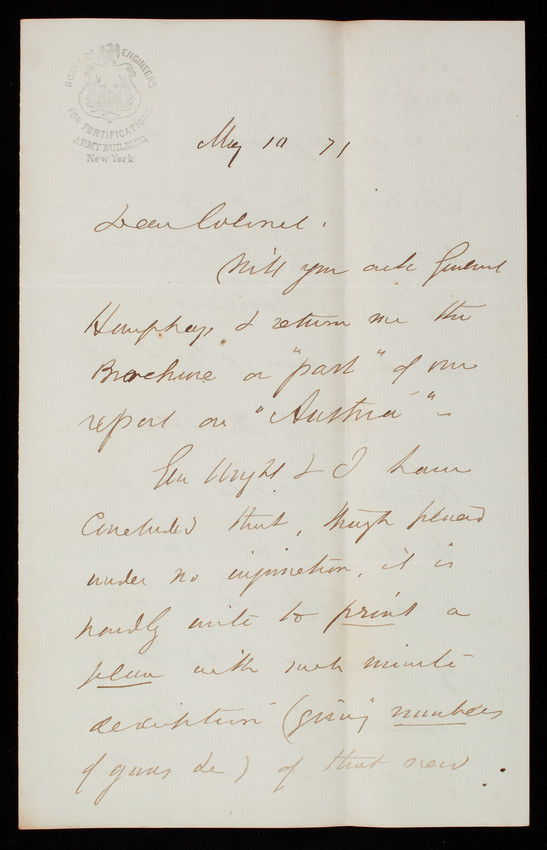 BOARD OF ENGINEERS
FOR FORTIFICATIONS
ARMY BUILDING
New York
May 10 71
Dear Colonel.
Will you ask General
Humphreys to return me the
Brochure or "part" of our
report on "Austria" -
Gen Wright & I have
concluded that, though placed
under no injunction, it is
hardly quite to print a
plan with such minute
description (giving numbers
of guns &c) of that new